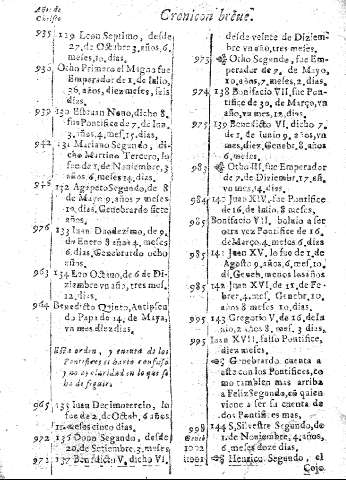 Año, de
Christo
Cronicon breve.
935 129 Leon Septimo, desde
27, de Octubre 3, años, 6,
meses, 10, dias.
930 Otho Primero el Magno fue
Emperador de 1, de Iulio,
36, años, diez meses, seis
dias.
939 130 Estevan Nono, dicho 8,
fue Pontifice de 7, de
3, años, 4, mes, 15, dias.
942 131 Mariano Segundo, di-
cho Martino Tercero, lo
fue de 1, de Noviembre, 3
años, 6, meses 14, dias.
946 132 Agapeto Segundo, de 8
de Mayo 9, años 7 meses
10, dias. Genebrardo siete
años.
976 133 Iuan Duodezimo, de 9,
de Enero 8 años 4, meses
6, dias. Genebrardo ocho
años.
963 134 Leo Octavo, de 6 de Di-
ziembre vn año, tres mes.
12, dias.
964 Benedicto Quinto, Antipecu
da Papa de 14, de Maya,
vn mes, diez dias.
Este orden, y cuenta de los
Pontifices si basto confusa
y no es claridad en lo que se
ha de seguir.
965 135 Iuan Decimotercio, lo
fue de 2, de Octub, 6 años,
11, meses cinco dias.
972 136 Dono Segundo, desde
20, de Setiembre, 3, meses
973 137 Benedicto V, dicho VI,
desde veinte de Diziem-
bre vn año, tres meses.
973 Otho Segundo, fue Em-
perador de 7, de Mayo,
10, años, 7, meses, 2, dias.
974 138 Bonifacio VII, fue Pon-
tifice de 30, de Março, vn
año, vn mes, 12, dias.
975 139 Benedicto VI, dicho 7,
de 1, de Iunio 9, años, vn
mes, diez, Genebr, 8, años
6, meses.
983 Otho III, fue Emperador
de 7, de Diziembr, 17, añ,
vn mes, 14, dias.
984 140 Iuan XIV, fue Pontifice
de 16, de Iulio, 8 meses.
985 Bonifacio VII, bolvio a ser
otra vez Pontifice de 16,
de Março, 4, meses 6, dias
985 141 Iuan XV, lo fue de 1, de
Agosto 9, años, 6, mes, 10,
di, Genev, menos los años
985 142 Iuan XVI, de 15, de Fe-
brer, 4, mes, Genebr, 10,
años 8 meses 10, dias.
995 143 Gregorio V, de 16, de Iu-
nio, 2 años 8, mes, 3 dias.
995 Iuan XVII, falso Pontifice,
diez meses.
Genebrardo cuenta a
este con los Pontifices, co
mo tambien mas arriba
a Feliz Segundo, có quien
viene a ser su cuenta de
dos Pontifices mas,
998 144 S, Silvestre Segundo, de
1, de Noviembre, 4, años,
1002 6, meses doze dias,
1001 Henrico Segundo, el
Cojo